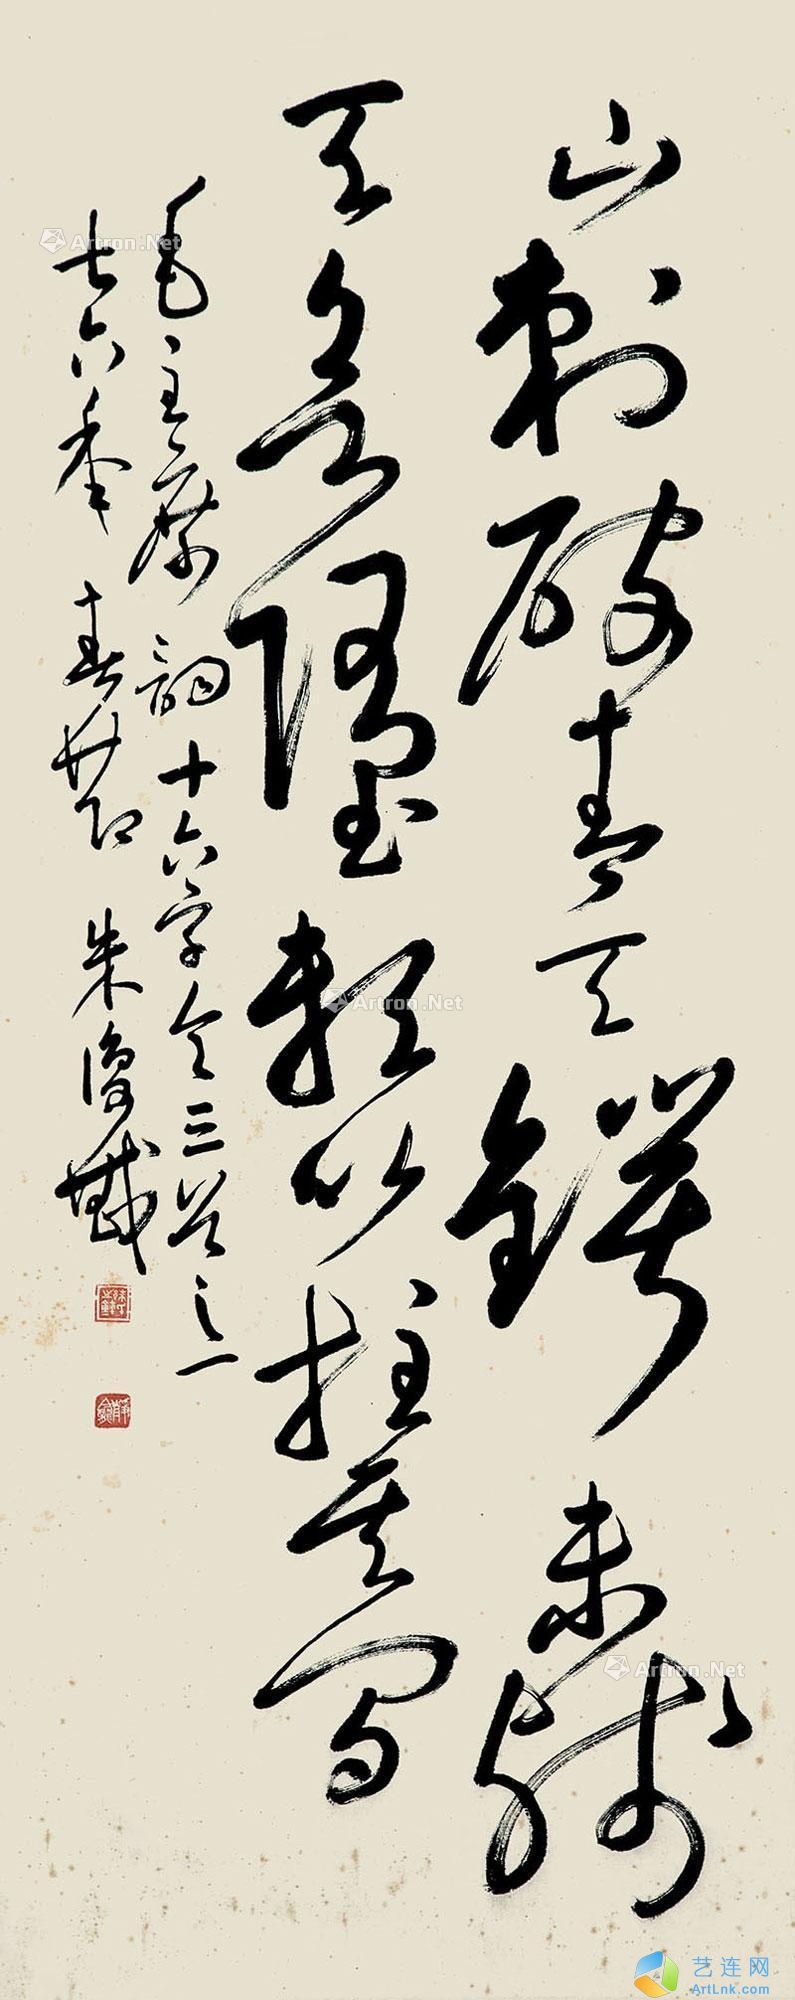 山刺破青天鍔未殘
天欲墮賴以拄其間
毛主席詞十六字令三首之一
七六秊春節 朱復戡
Artron.Net
Artron.Net
Artron.Net
艺连网
ArtLnk.com